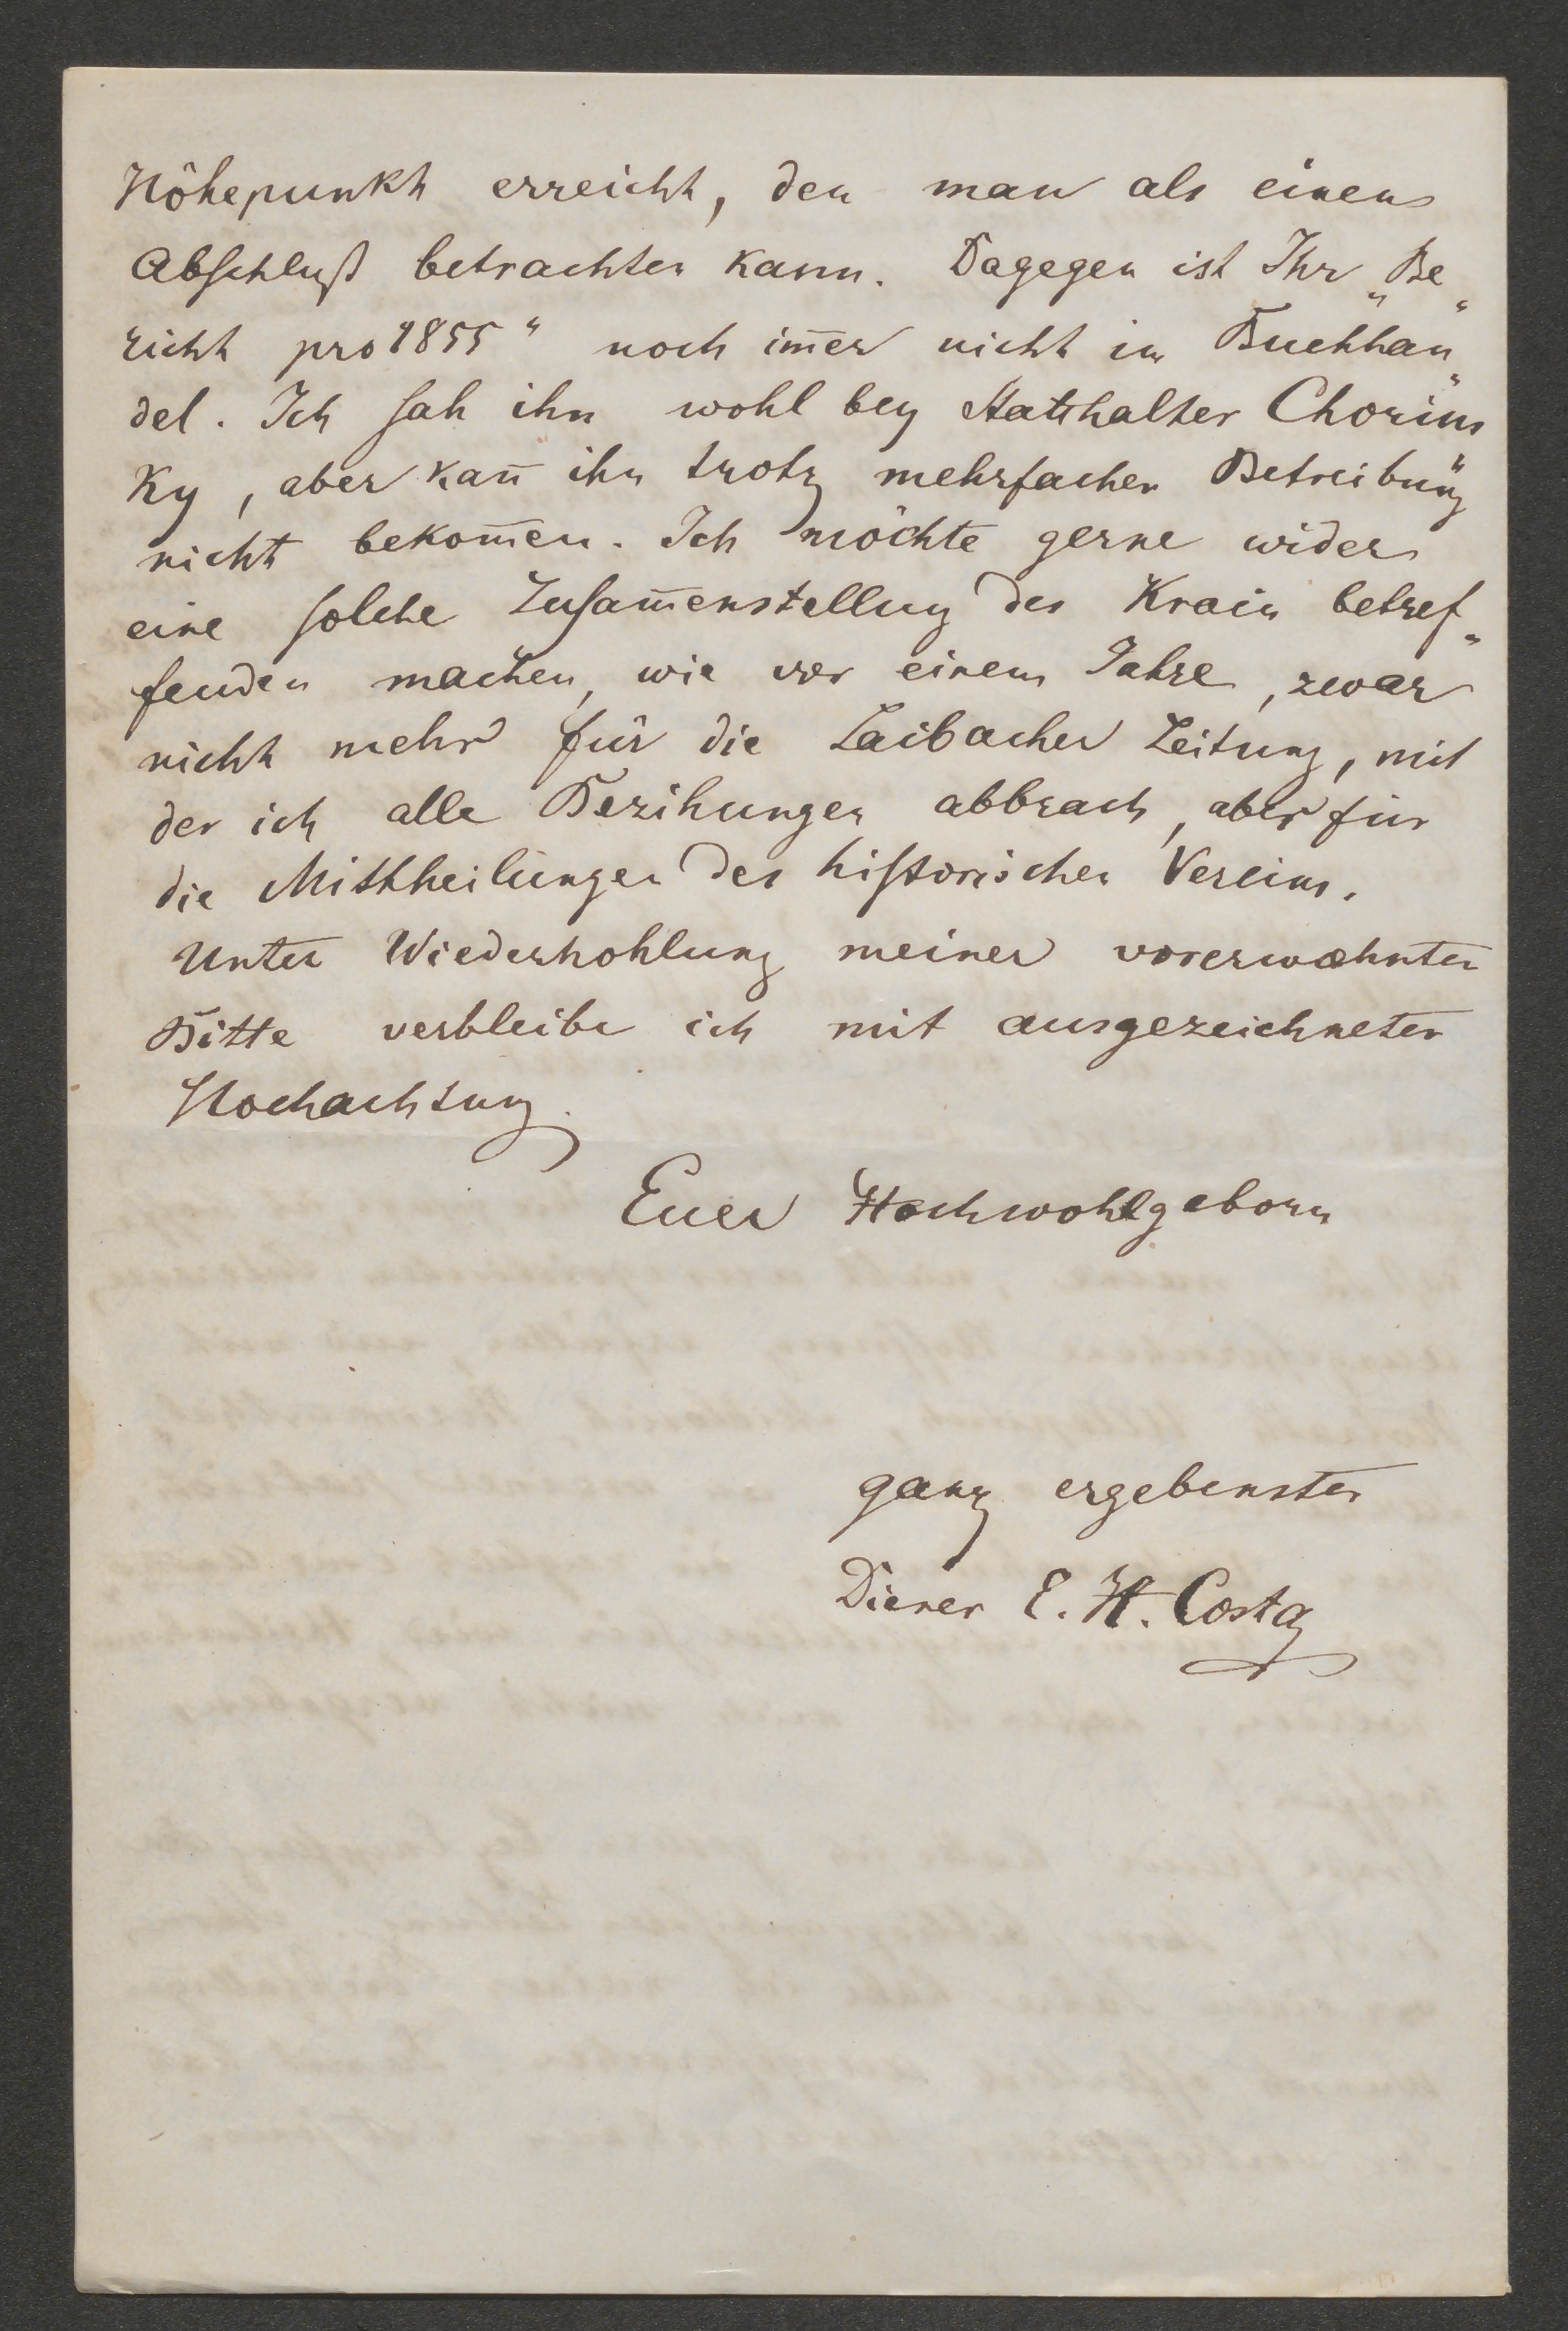 Höhepunkt erreicht, den man als einen
Abschluß betrachten kann. Dagegen ist Ihr „Be„
richt pro 1855“ noch im̅er nicht im Buchhan„
del. Ich sah ihn wohl bey Statthalter Chorins„
ky, aber kan̅ ihn trotz mehrfacher Betreibung
nicht bekom̅en. Ich möchte gerne wider
eine solche Zusam̅enstellung des Krain betref„
fenden machen, wie vor einem Jahre, zwar
nicht mehr für die Laibacher Zeitung, mit
der ich alle Bezihungen abbrach, aber für
die Mittheilungen des historischen Vereins.
Unter Wiederhohlung meiner vorerwæhnten
Bitte verbleibe ich mit ausgezeichneter
Hochachtung.
Euer Hochwohlgeborn
ganz ergebenster
Diener E. H. Costa